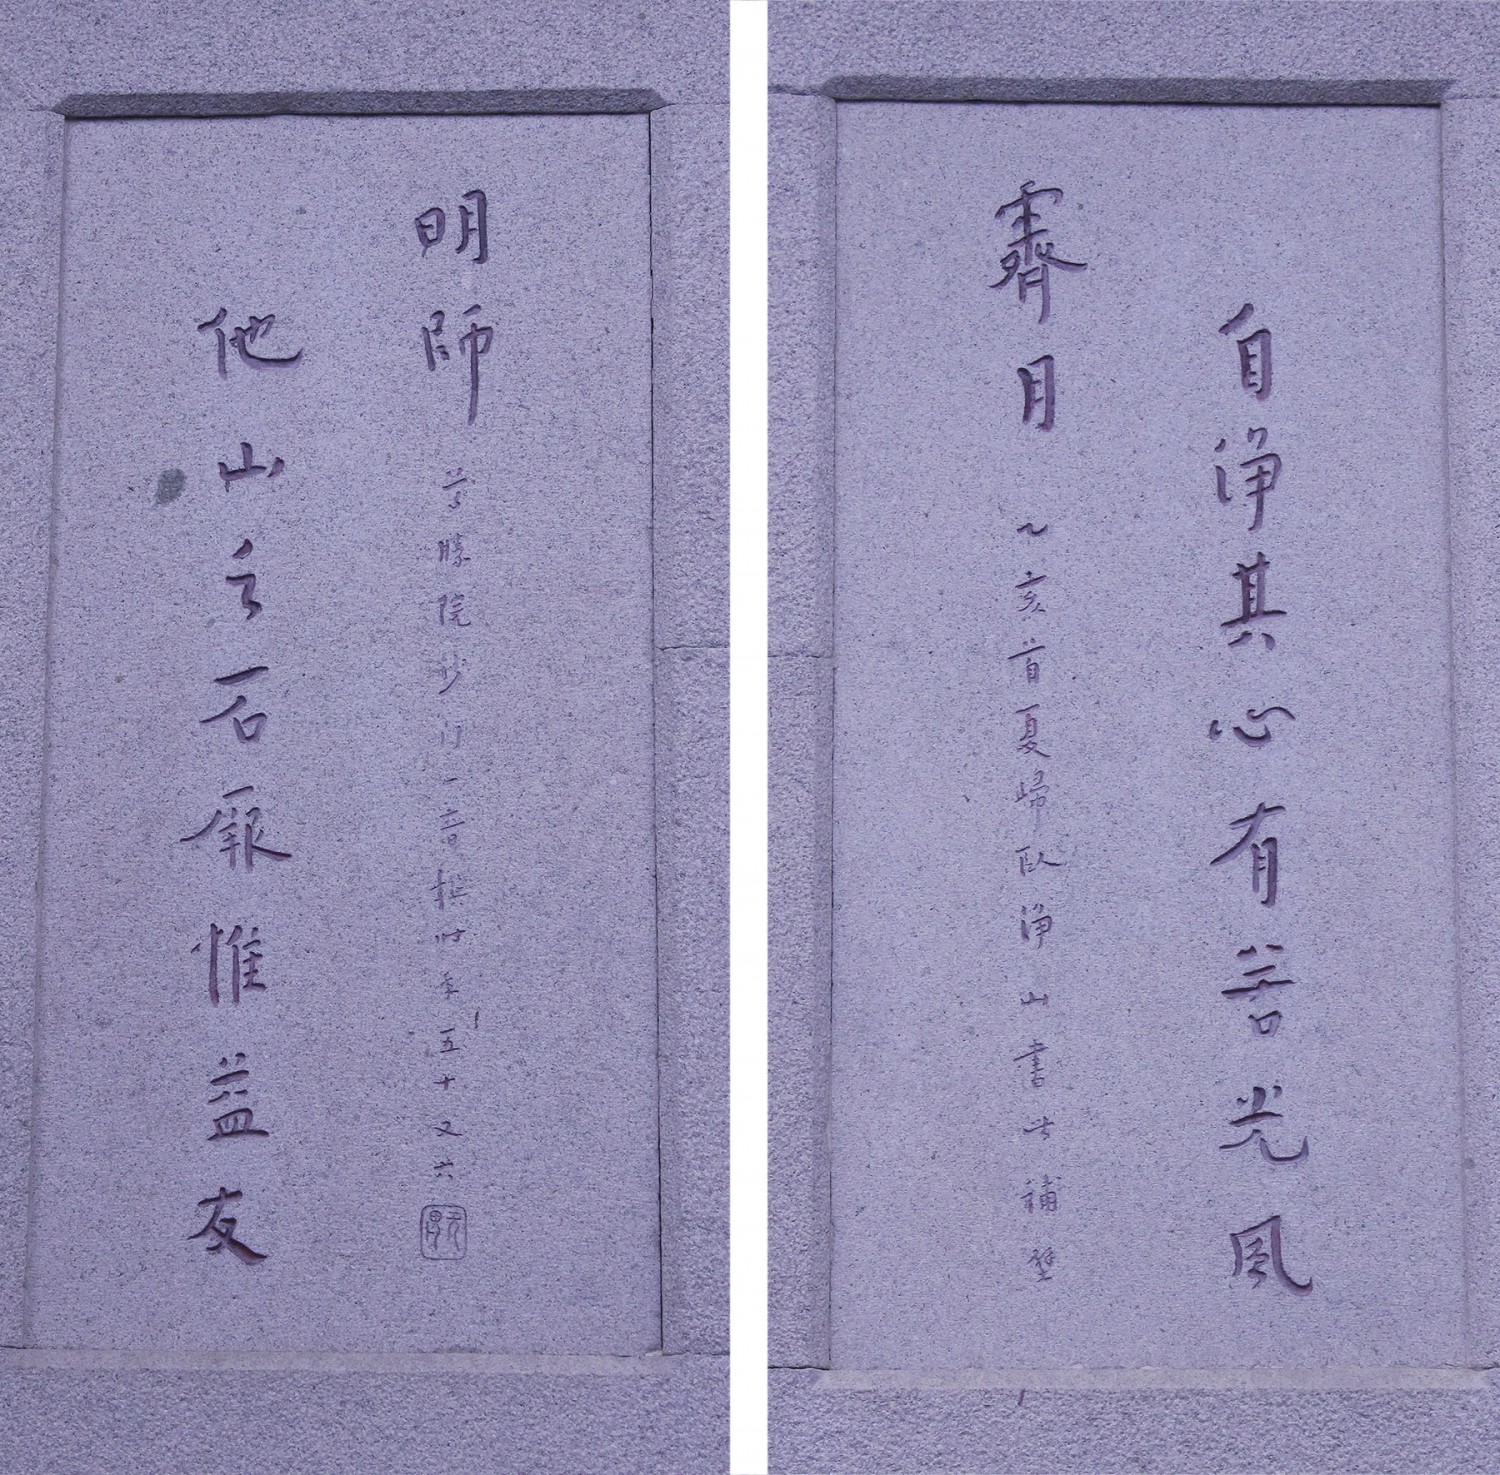 自淨其心有若光風
霽月
乙亥首夏歸臥淨山書此補壁
他山之石厥惟益友
明師
尊勝院沙門一音時年五十又六